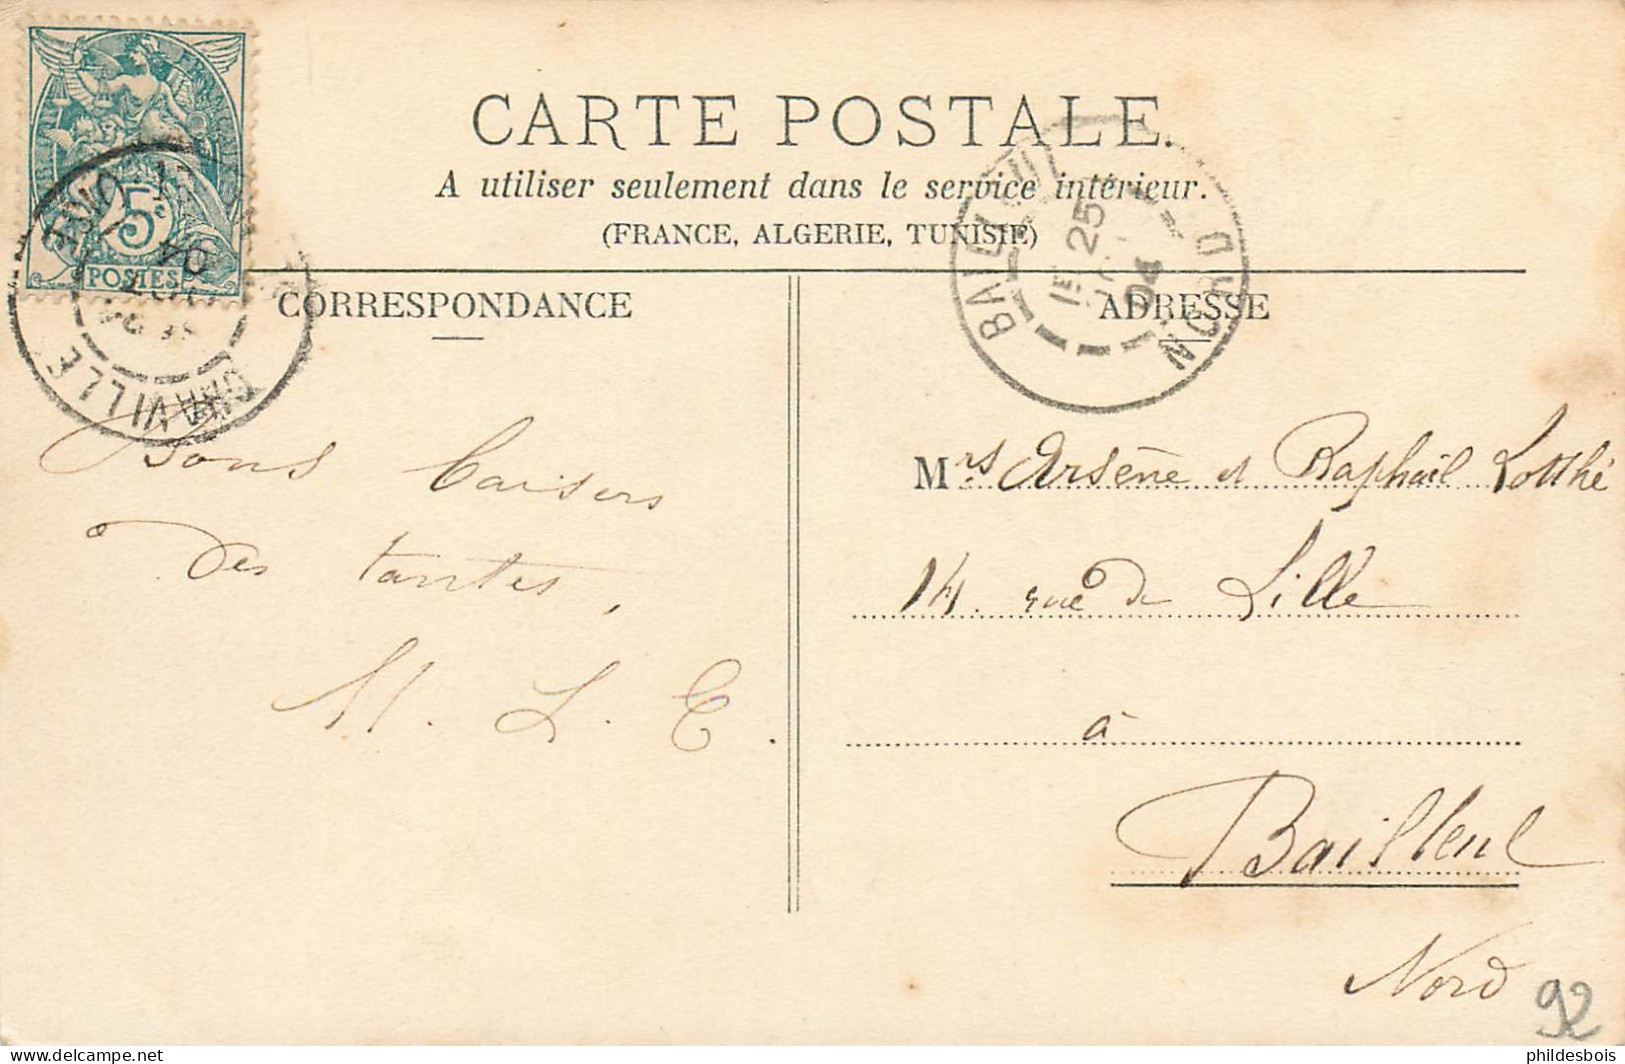 5c
POSTES
CARTE POSTALE.
A utiliser seulement dans le service intérieur.
(FRANCE, ALGERIE, TUNISIE)
CORRESPONDANCE
Bons baisers
des tantes,
M. L. E.
ADRESSE
BAILLEUL
25
04
NORD
Mrs Arsène et Raphaël Lotthé
14. rue de Lille
à
Bailleul
Nord
92
phildesbois